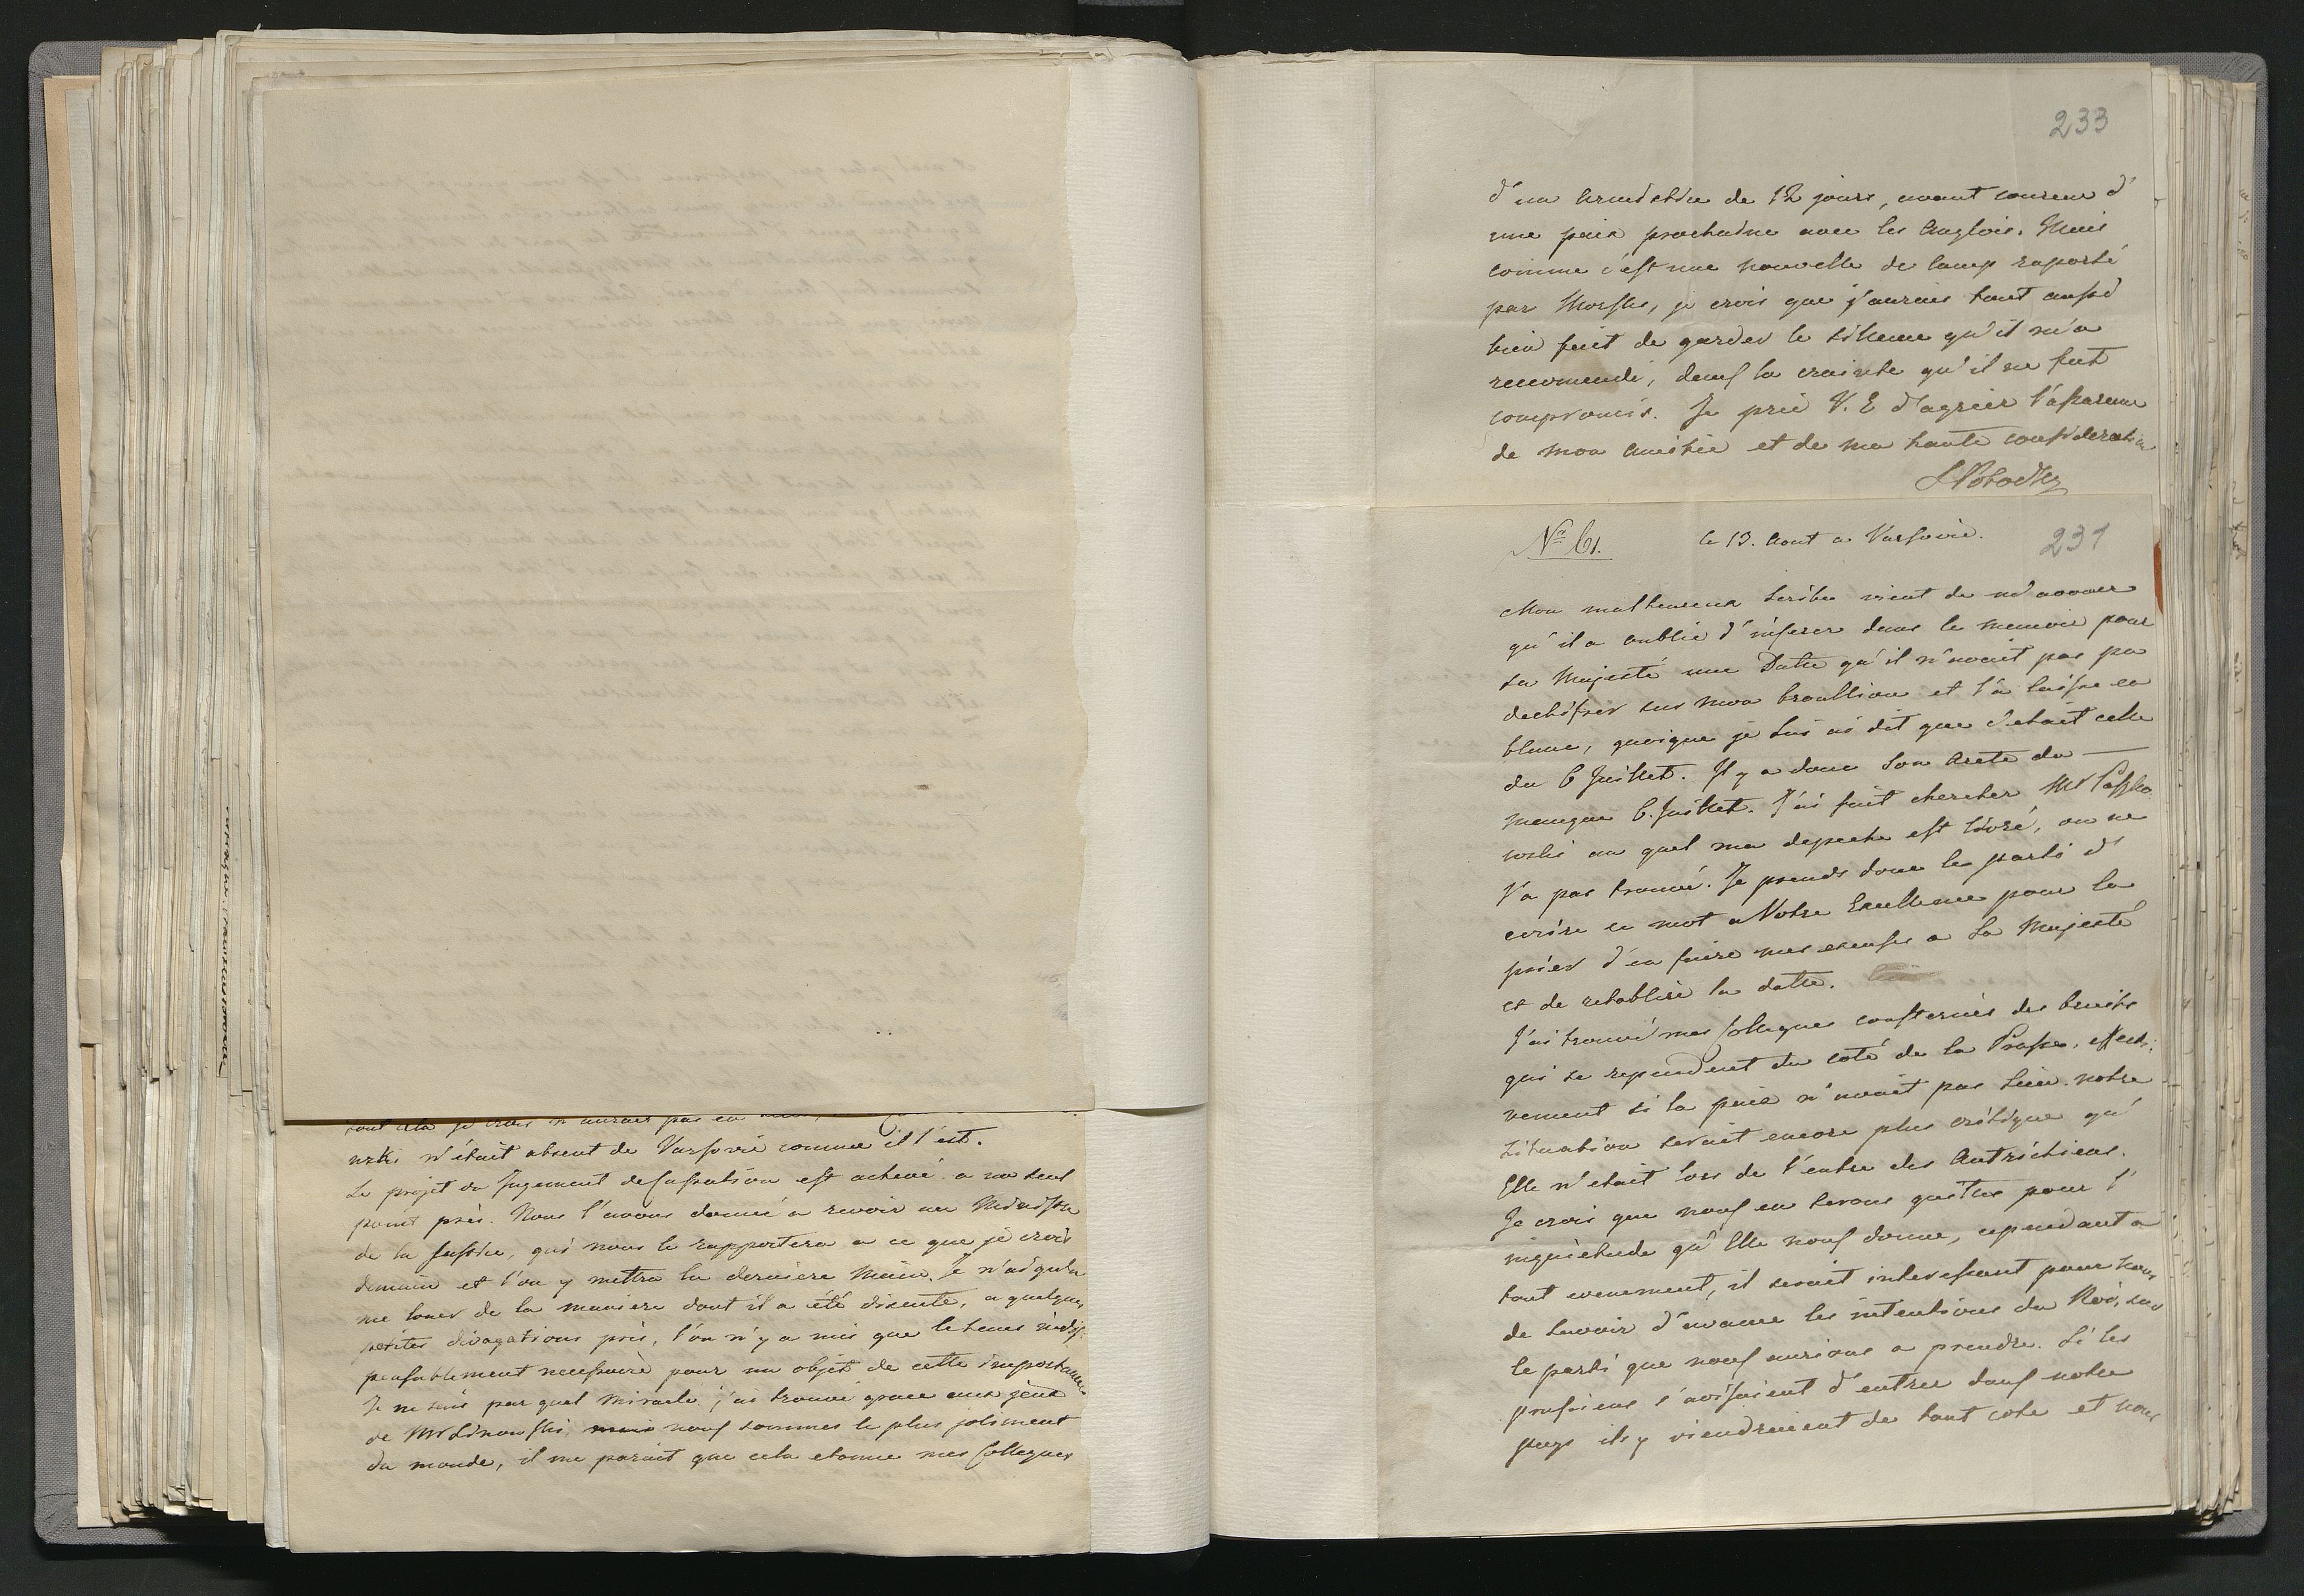 nski n'était absent de Varsovie comme il l'est.
Le projet du Jugement de Cassation est achevé a un seul
point près. Nous l'avons donné a revoir au Ministre
de la Justice, qui nous le rapportera a ce que je crois
demain et l'on y mettra la derniere main. Je n'ai qu'a
me louer de la maniere dont il a été discuté, a quelques
petites divagations près, l'on n'y a mis que le tems indis-
pensablement necessaire pour un objet de cette importance
Je ne sais par quel miracle j'ai trouvé grace aux yeux
de Mr Linowski, mais nous sommes le plus joliment
du monde, il me parait que cela etonne mes Collegues
233
d'un Armistice de 12 jours, avant coureur d'
une paix prochaine avec les Anglois. Mais
comme c'est une nouvelle de camp raporté
par Morski, je crois que j'aurais tout aussi
bien fait de garder le silence qu'il m'a
recomendé, dans la crainte qu'il ne fut
compromis. Je prie V. E d'agréer l'assurance
de mon amitié et de ma haute consideration
SPotocki
No 61. le 13. Aout a Varsovie. 231
Mon malheureux scribe vient de m'avouer
qu'il a oublié d'inserer dans le memoire pour
sa Majesté une Datte qu'il n'avait pas pu
dechifrer sur mon brouillion et l'a laissé en
blanc, quoique je lui ai dit que c'etait celle
du 6 Juillet. Il y a donc Son Arete du —
manque 6. Juillet. J'ai fait chercher Mr Paszko
wski au quel ma depeche est livré, on ne
l'a pas trouvé. Je prends donc le parti d'
ecrire ce mot a Votre Excellence pour la
prier d'en faire mes excuses a Sa Majesté
et de retablire la datte.
J'ai trouvé mes Collegues consternés des bruits
qui se rependent du coté de la Prusse, effecti-
vement si la paix n'avait pas lieu. notre
situation serait encore plus critique qu'
Elle n'etait lors de l'entré des Autrichiens.
Je crois que nous en serons quittes pour l'
inquietude qu'Elle nous donne, cependant a
tout evenement, il serait interessant pour nous
de savoir d'avance les intentions du Roi, sur
le parti que nous aurions a prendre. Si les
prussiens s'avisaient d'entrer dans notre
pays ils y viendraient de tout coté et nous